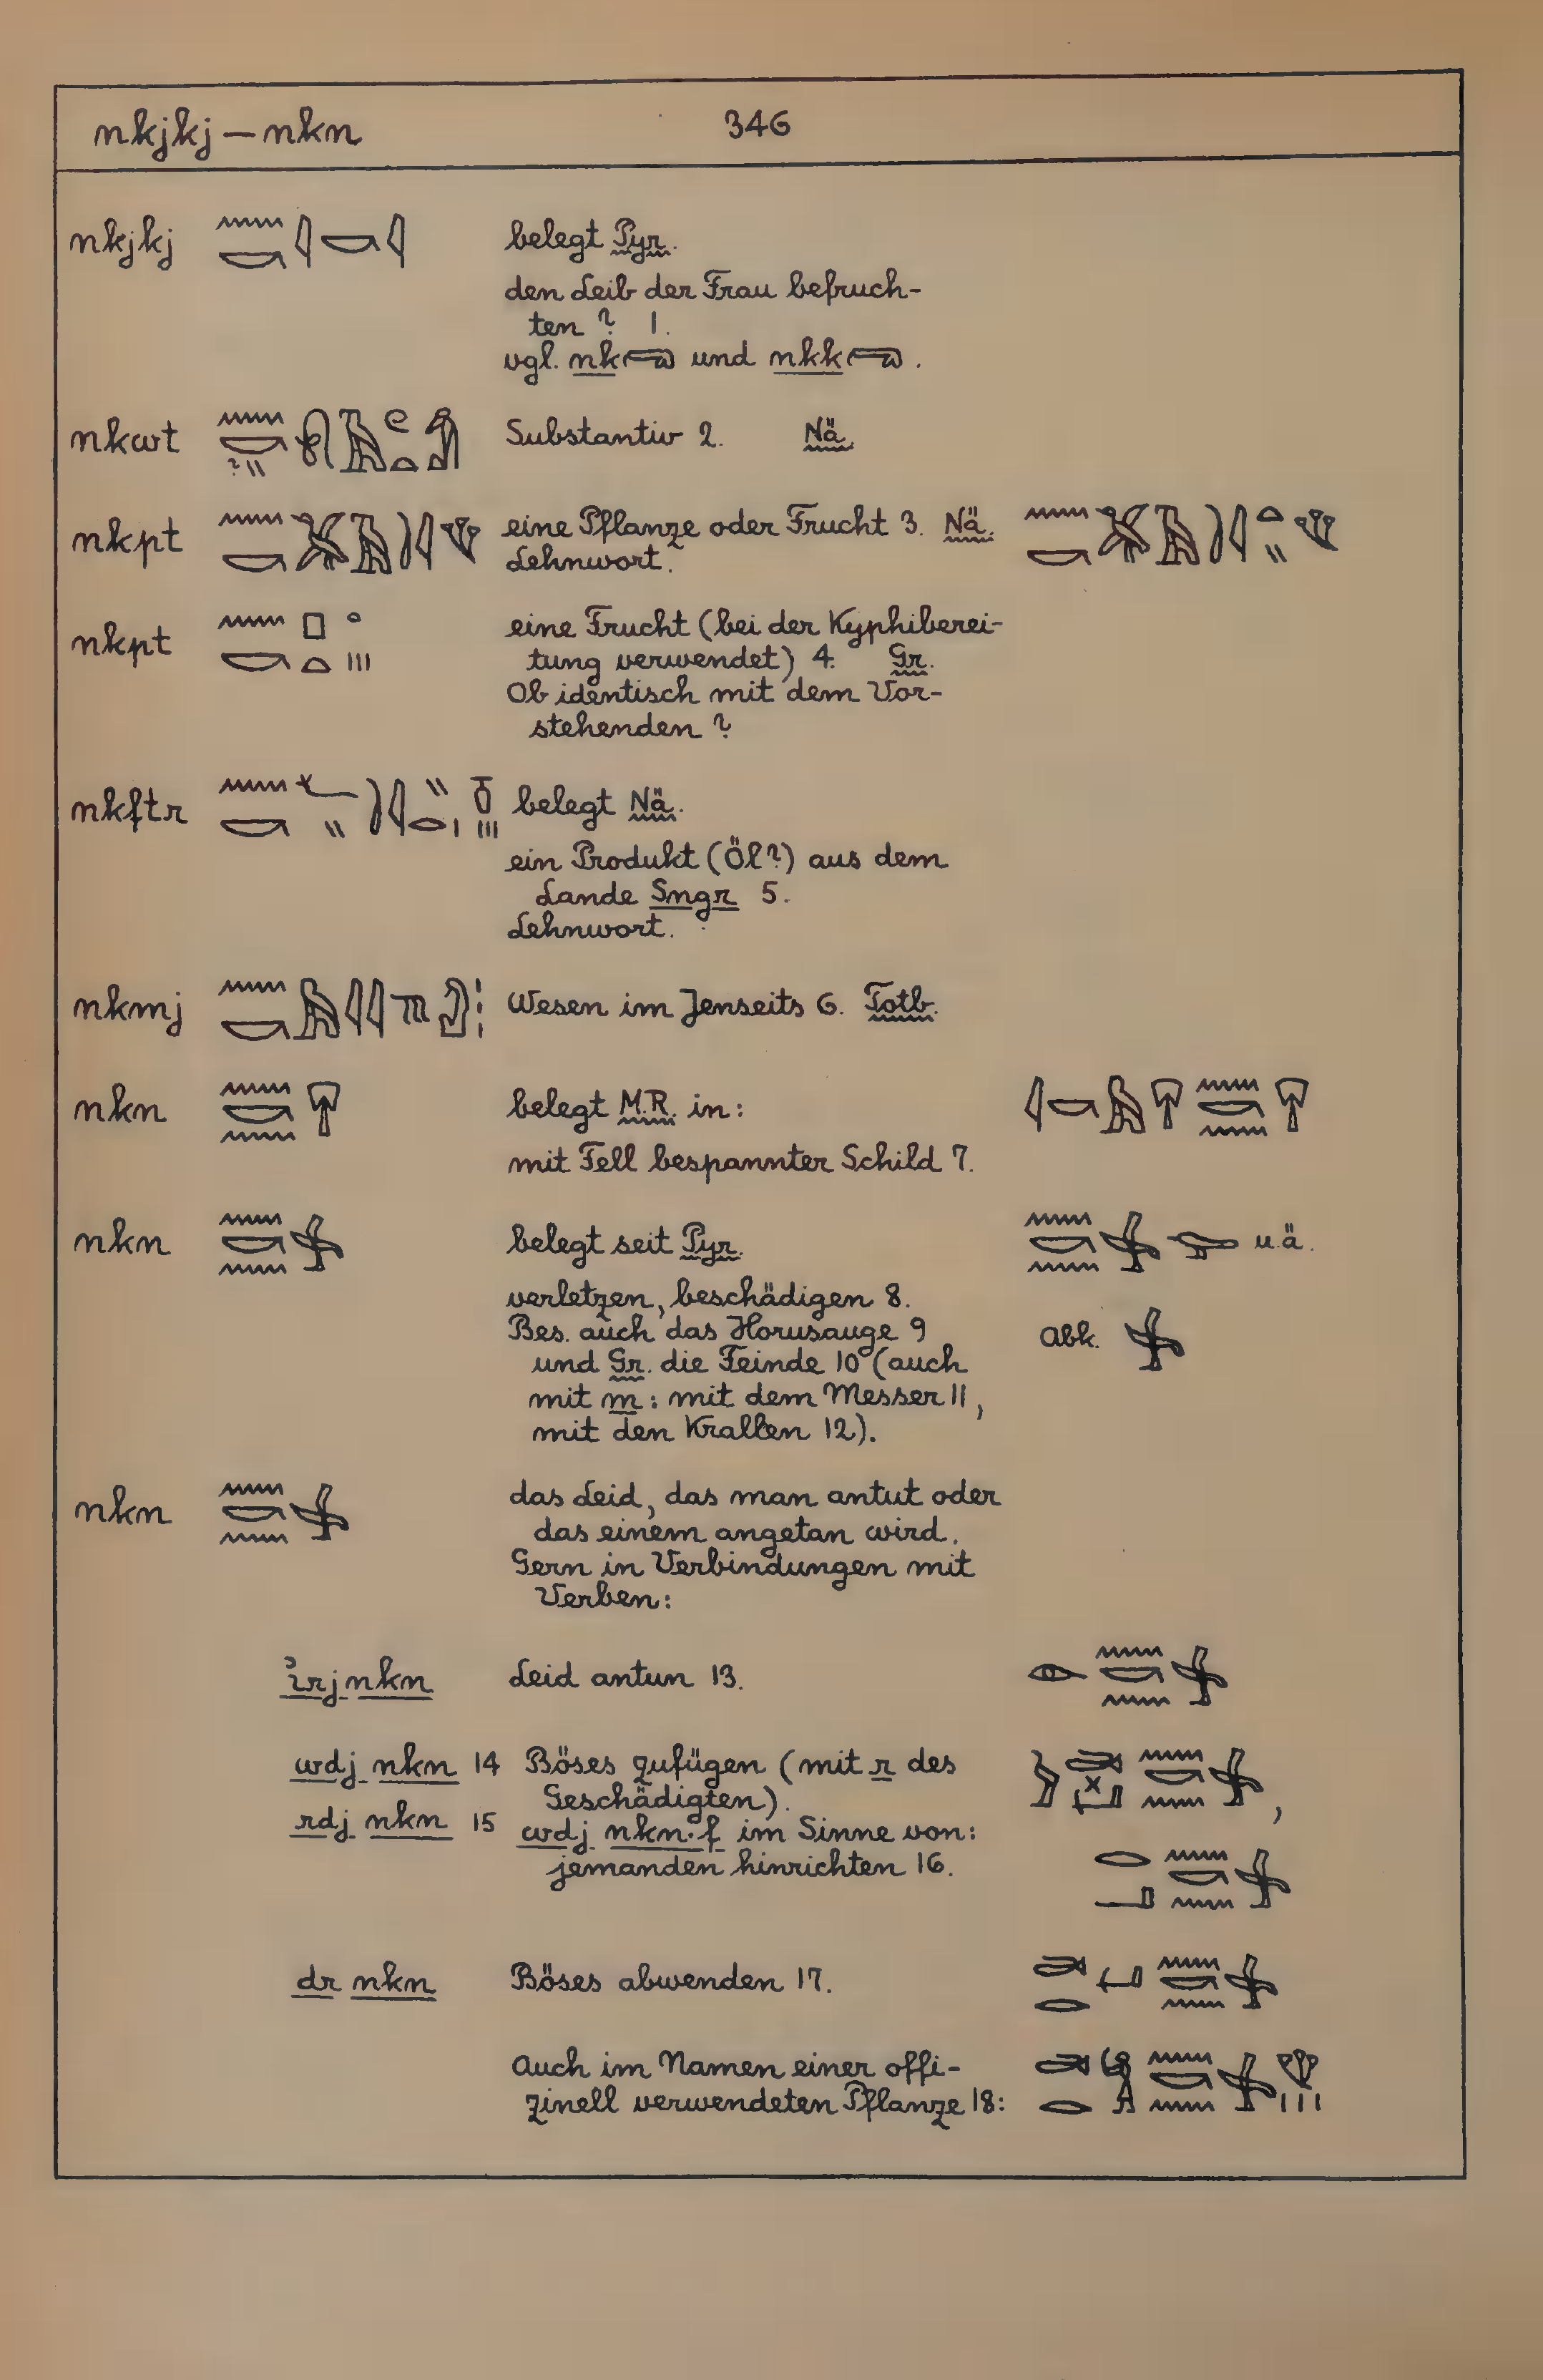 nkjkj — nkn 346
nkjkj belegt Pyr.
den Leib der Frau befruch-
ten ? 1.
vgl. nk und nkk .
nkwt Substantiv 2. Nä.
nkpt eine Pflanze oder Frucht 3. Nä.
Lehnwort.
nkpt eine Frucht (bei der Kyphiberei-
tung verwendet) 4. Gr.
Ob identisch mit dem Vor-
stehenden ?
nkftr belegt Nä.
ein Produkt (Öl?) aus dem
Lande Sngr 5.
Lehnwort.
nkmj Wesen im Jenseits 6. Totb.
nkn belegt M.R. in:
mit Fell bespannter Schild 7.
nkn belegt seit Pyr. u.ä.
verletzen, beschädigen 8.
Bes. auch das Horusauge 9 Abk.
und Gr. die Feinde 10 (auch
mit m : mit dem Messer 11,
mit den Krallen 12).
nkn das Leid, das man antut oder
das einem angetan wird.
Gern in Verbindungen mit
Verben:
ỉrj nkn Leid antun 13.
wdj nkn 14 Böses zufügen (mit r des
Geschädigten).
rdj nkn 15 wdj nkn·f im Sinne von:
jemanden hinrichten 16.
dr nkn Böses abwenden 17.
Auch im Namen einer offi-
zinell verwendeten Pflanze 18: